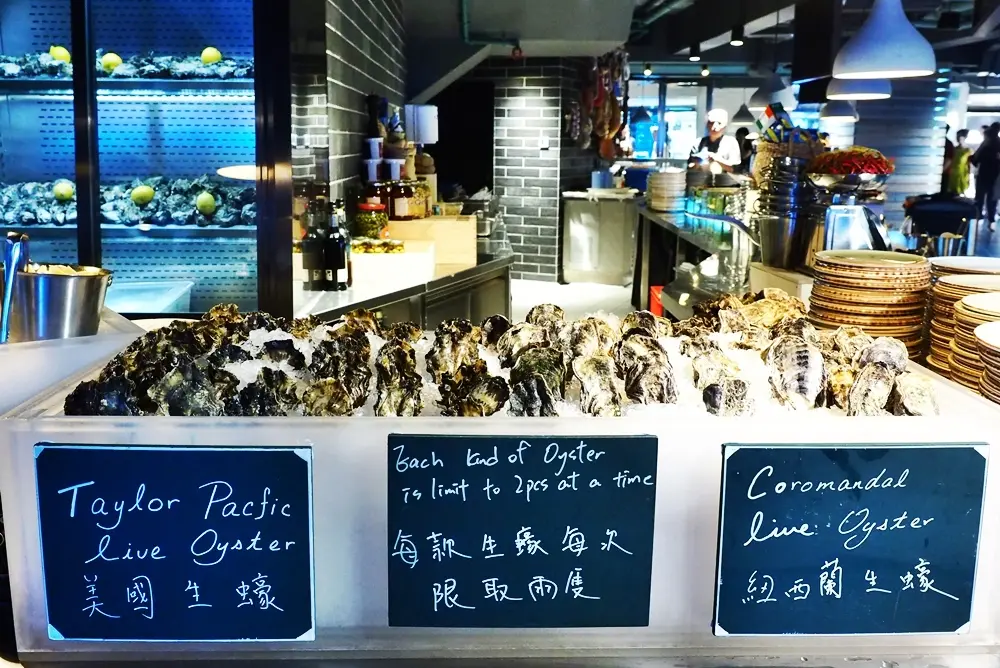 Taylor Pacfic
live Oyster
美國生蠔
Each kind of Oyster
is limit to 2pcs at a time
每款生蠔每次
限取兩隻
Coromandal
live Oyster
紐西蘭生蠔